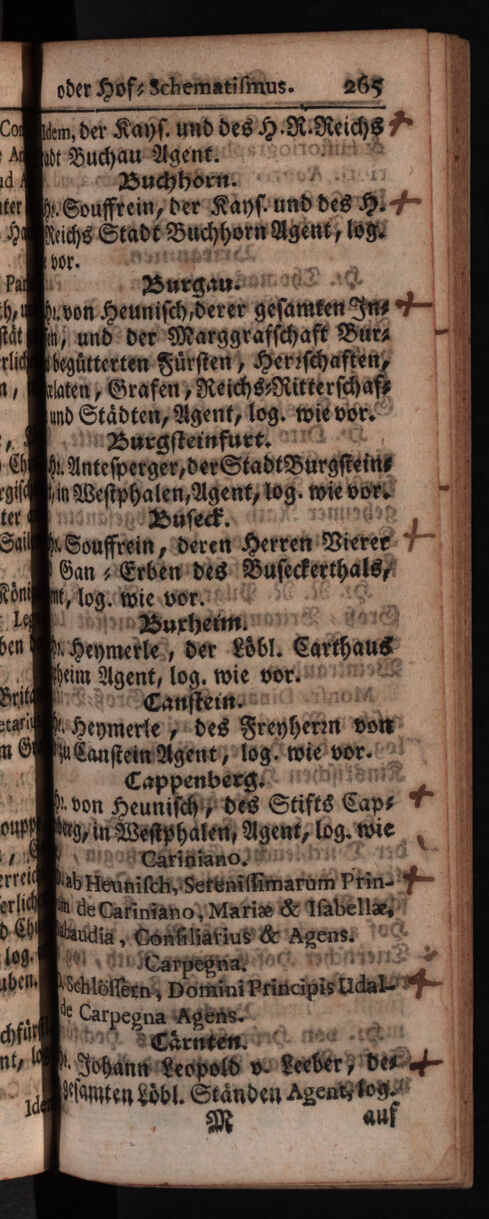 oder Hof-Schematismus. 265
Idem, der Kays. und des H. R. Reichs
Buchau Agent.
Buchhorn.
Hr. Souffrein, der Kays. und des H.
Reichs Stadt Buchhorn Agent, log.
vor.
Burgau.
Hr. von Heunisch, derer gesamten In-
und der Marggrafschaft Bur-
begütterten Fürsten, Herrschaften,
Grafen, Reichs-Ritterschaf-
und Städten, Agent, log. wie vor.
Burgsteinfurt.
Hr. Antesperger, der Stadt Burgstein-
in Westphalen, Agent, log. wie vor.
Buseck.
Hr. Souffrein, deren Herren Vierer
Gan-Erben des Buseckerthals,
log. wie vor.
Buxheim.
Hr. Heymerle, der Löbl. Carthaus
heim Agent, log. wie vor.
Canstein.
Hr. Heymerle, des Freyherrn von
zu Canstein Agent, log. wie vor.
Cappenberg.
Hr. von Heunisch, des Stifts Cap-
berg, in Westphalen, Agent, log. wie
Cariniano.
ab Heunisch, Serenissimarum Prin-
de Cariniano, Mariæ & Isabellæ,
Consiliarius & Agens.
Carpegna.
Schlössern, Domini Principis Udal-
de Carpegna Agens.
Cärnten.
Hr. Johann Leopold v. Leeber, der
gesamten Löbl. Ständen Agent, log.
M auf